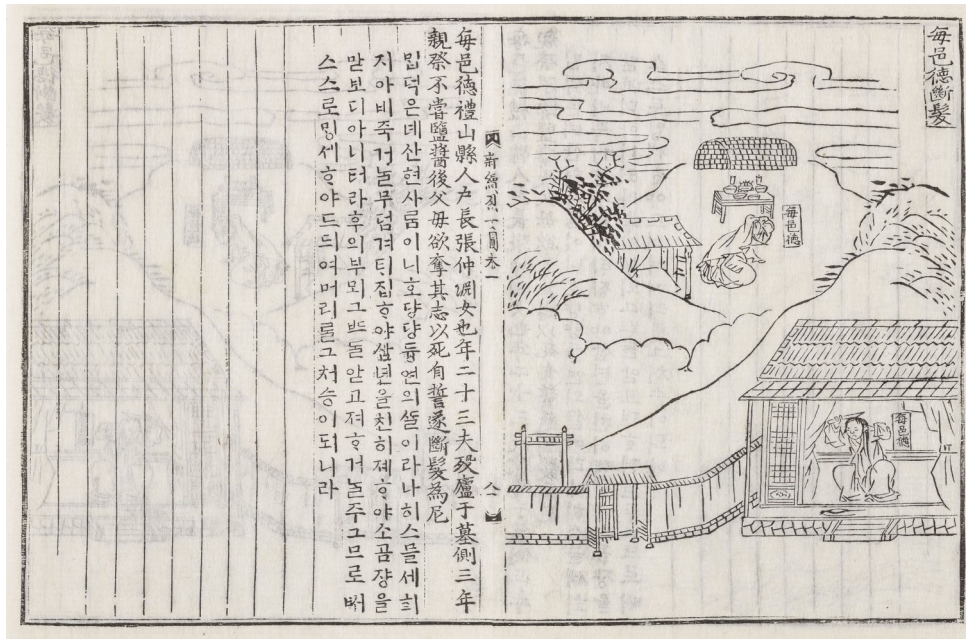 每邑德斷髮
每邑德
每邑德
新續烈女圖卷一
每邑德禮山縣人戶長張仲淵女也年二十三夫歿廬于墓側三年
親祭不嘗鹽醬後父母欲奪其志以死自誓遂斷髮為尼
믭덕은녜산현사ᄅᆞᆷ이니호댱댱듕연의ᄯᆞᆯ이라나히스믈세희
지아비죽거ᄂᆞᆯ무덤겨ᄐᆡ집ᄒᆞ야삼년을친히졔ᄒᆞ야소곰쟝을
맏보디아니터라후의부뫼그ᄠᅳᄃᆞᆯ앋고져ᄒᆞ거ᄂᆞᆯ주그므로ᄡᅥ
스스로밍셰ᄒᆞ야드듸여머리ᄅᆞᆯ그처승이되니라